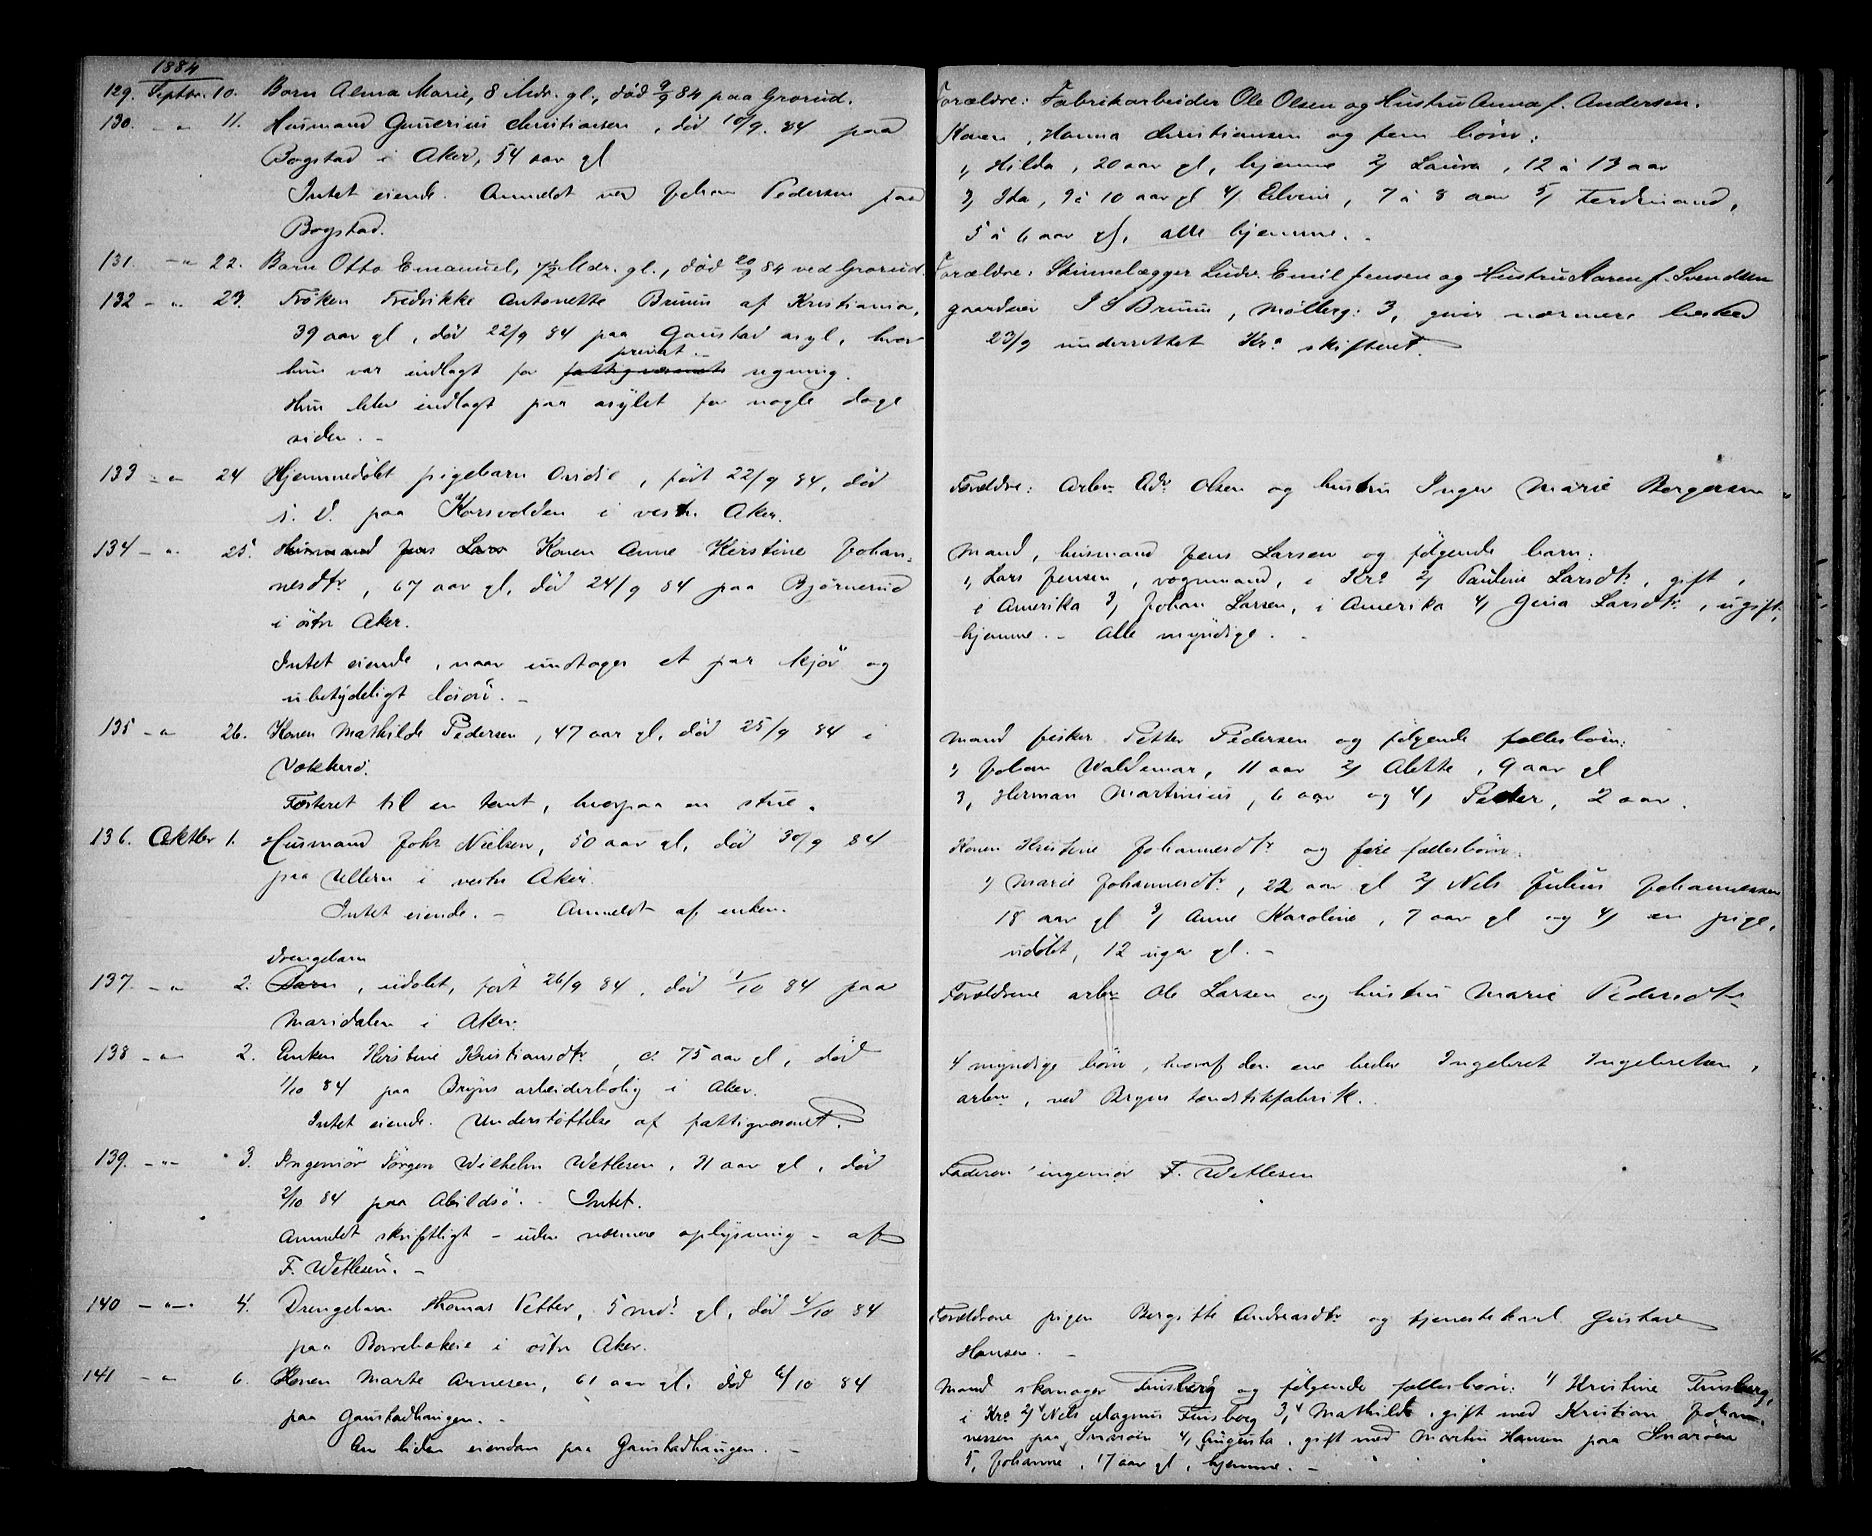 1884
129. Septbr. 10. Barn Alma Marie, 8 Mdr. gl., død 9/9 84 paa Grorud.
130. – " 11. Husmand Gunerius Christiansen, død 10/9. 84 paa
Bogstad i Aker, 54 aar gl
Intet eiende. Anmeldt ved Johan Pedersen paa
Bogstad.
131. – " 22. Barn Otto Emanuel, 4½ Mdr. gl., død 20/9 84 ved Grorud.
132 – " 23. Frøken Fredrikke Antonette Bruun af Kristiania,
39 aar gl, død 22/9 84 paa Gaustad asyl, hvor
privat
hun var indlagt for fattigvæsenets regning.
Hun blev indlagt paa asylet for nogle dage
siden. –
133 – " 24 Hjemmedøbt pigebarn Ovidie, født 22/9 84, død
s. d. paa Korsvolden i vestr. Aker.
134 – " 25. Husmand Jens Lars Konen Anne Kirstine Johan-
nesdtr, 67 aar gl, død 24/9 84 paa Bjørnerud
i østr Aker.
Intet eiende, naar undtages et par kjør og
ubetydeligt løsøre. –
135 – " 26. Konen Mathilde Pedersen, 47 aar gl, død 25/9 84 i
Vækkerø.
Festeret til en tomt, hvorpaa en stue.
136. Oktbr 1. Husmand Johs Nielsen, 50 aar gl, død 30/9 84
paa Ullern i vestr Aker.
Intet eiende. – Anmeldt af enken.
Drengebarn
137. – " 2. Barn, udøbt, født 26/9 84, død 1/10 84 paa
Maridalen i Aker.
138 – " 2. Enken Kirstine Kristiansdtr, c. 75 aar gl, død
1/10 84 paa Bryns arbeiderbolig i Aker.
Intet eiende. Understøttelse af fattigvæsenet.
139. – " 3. Ingeniør Jørgen Wilhelm Wetlesen, 31 aar gl, død
2/10 84 paa Abildsø. – Intet.
Anmeldt skriftligt – uden nærmere oplysning – af
F. Wetlesen. –
140 – " – 4. Drengebarn Thomas Petter, 5 mdr gl, død 4/10 84
paa Borrebakken i østr Aker.
141 – " 6. Konen Marte Arnesen, 61 aar gl, død 6/10 84
paa Gaustadhaugen. –
En liden eiendom paa Gaustadhaugen. –
Forældre: Fabrikarbeider Ole Olsen og Hustru Anna f. Andersen.
Konen, Hanna Christiansen og fem børn:
1, Hilda, 20 aar gl, hjemme 2, Laura, 12 à 13 aar
3, Ida, 9 à 10 aar gl 4, Elvine, 7 à 8 aar 5, Ferdinand,
5 à 6 aar gl, alle hjemme. –
Forældre: Skinnelægger Ludv. Emil Jensen og Hustru Karen f. Svendsen
gaardeier J S Bruun, Møllerg: 3, giver nærmere besked
23/9 underrettet Kra skifteret.
Forældre: Arbr Edv Olsen og hustru Inger Marie Borgersen
Mand, husmand Jens Larsen og følgende barn:
1, Lars Jensen, vognmand, i Kra 2, Pauline Larsdtr, gift,
i Amerika 3, Johan Larsen, i Amerika 4, Gina Larsdtr, ugift,
hjemme. – Alle myndige. –
Mand fisker Petter Pedersen og følgende fællesbørn:
1, Johan Waldemar, 11 aar 2, Alette, 9 aar gl
3, Herman Martinius, 6 aar og 4, Peder, 2 aar.
Konen Kristine Johannesdtr og fire fællesbørn:
1, Marie Johannesdtr, 22 aar gl 2, Nels Julius Johannessen
18 aar gl 3, Anne Karoline, 7 aar gl og 4, en pige,
udøbt, 12 uger gl. –
Forældrene arbr Ole Larsen og hustru Marie Pedersdtr
4 myndige børn, hvoraf den ene heder Ingebret Ingebretsen,
arbr, ved Bryns tændstikfabrik.
Faderen ingeniør F. Wetlesen
Forældrene pigen Bergitte Andreasdtr og tjenestekarl Gustav
Hansen. –
Mand skomager Finsberg og følgende fællesbørn: 1, Kristine Finsberg,
i Kra 2, Nels Magnus Finsberg 3, Mathilde, gift med Kristian Johan-
nessen paa Snarøen 4, Augusta, gift med Martin Hansen paa Snarøen
5, Johanne, 17 aar gl, hjemme. –